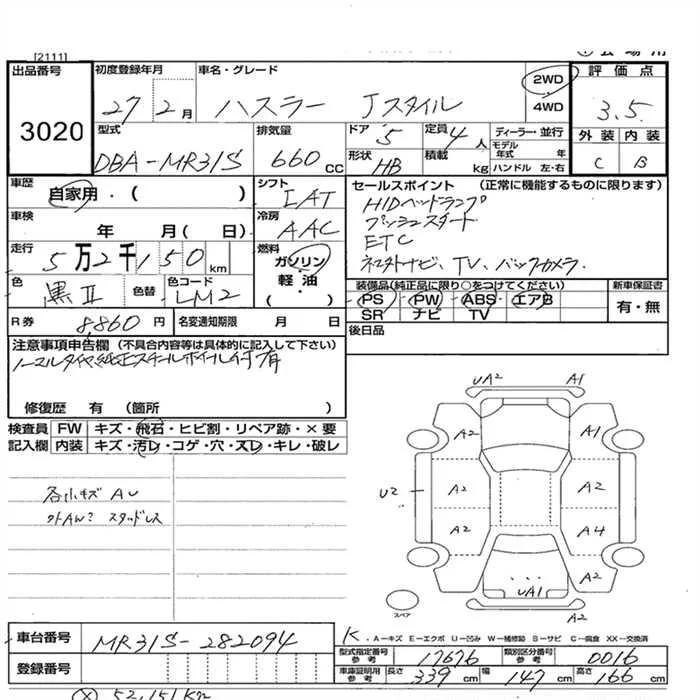 [2111]
出品番号 初度登録年月 車名・グレード 2WD 評価点
3020 27 2月 ハスラー Jスタイル 4WD 3.5
型式 排気量 ドア 5 定員 4人 ディーラー・並行 外装 内装
DBA-MR31S 660 CC 形状 HB 積載 kg モデル年式 年 ハンドル 左・右 C B
車歴 自家用・( ) シフト IAT セールスポイント (正常に機能するものに限ります)
車検 年 月( 日) 冷房 AAC HIDヘッドランプ
プッシュスタート
走行 5万2千150km 燃料 ガソリン 軽油 ・( ) ETC
TV、バックカメラ
色 黒II 色替 色コード LM2 装備品(純正品に限り○をつけてください) 新車保証書
PS PW ABS エアB 有・無
SR ナビ TV
R券 8860円 名変通知期限 月 日 後日品
注意事項申告欄 (不具合内容等は具体的に記入して下さい)
ノーマルタイヤ純正スチールホイール付有
修復歴 有 (箇所 )
検査員 FW キズ・飛石・ヒビ割・リペア跡・×要
記入欄 内装 キズ・汚レ・コゲ・穴・スレ・キレ・破レ
各小キズ AU
外AW? スタッドレス
UA2 A1
A2 A1
U2 A2 A2
A2 A4
A2
UA1
スペア A2
車台番号 MR31S-282094 K A-キズ E-エクボ U-凹み W-補修跡 S-サビ C-腐食 XX-交換済
登録番号 型式指定番号 参考 17676 類別区分番号 参考 0016
車庫証明用 参考 長さ 339 cm 幅 147 cm 高さ 166 cm
(X) 52,151Km